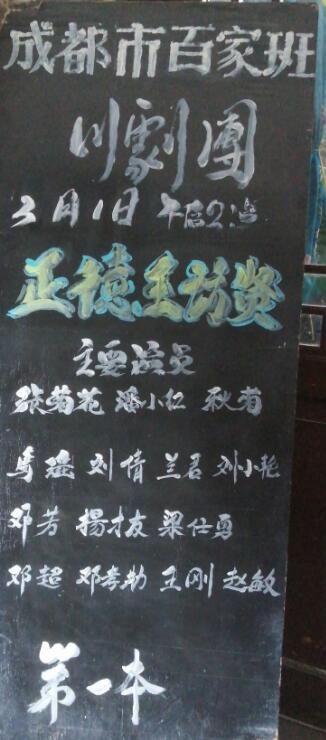 成都市百家班
川劇團
3月1日 午后2:
正德王访贤
主要演员
张菊花 潘小红 秋菊
马瑶 刘倩 兰君 刘小艳
邓芳 楊才友 梁仕勇
邓超 邓孝勋 王刚 赵敏
第一本